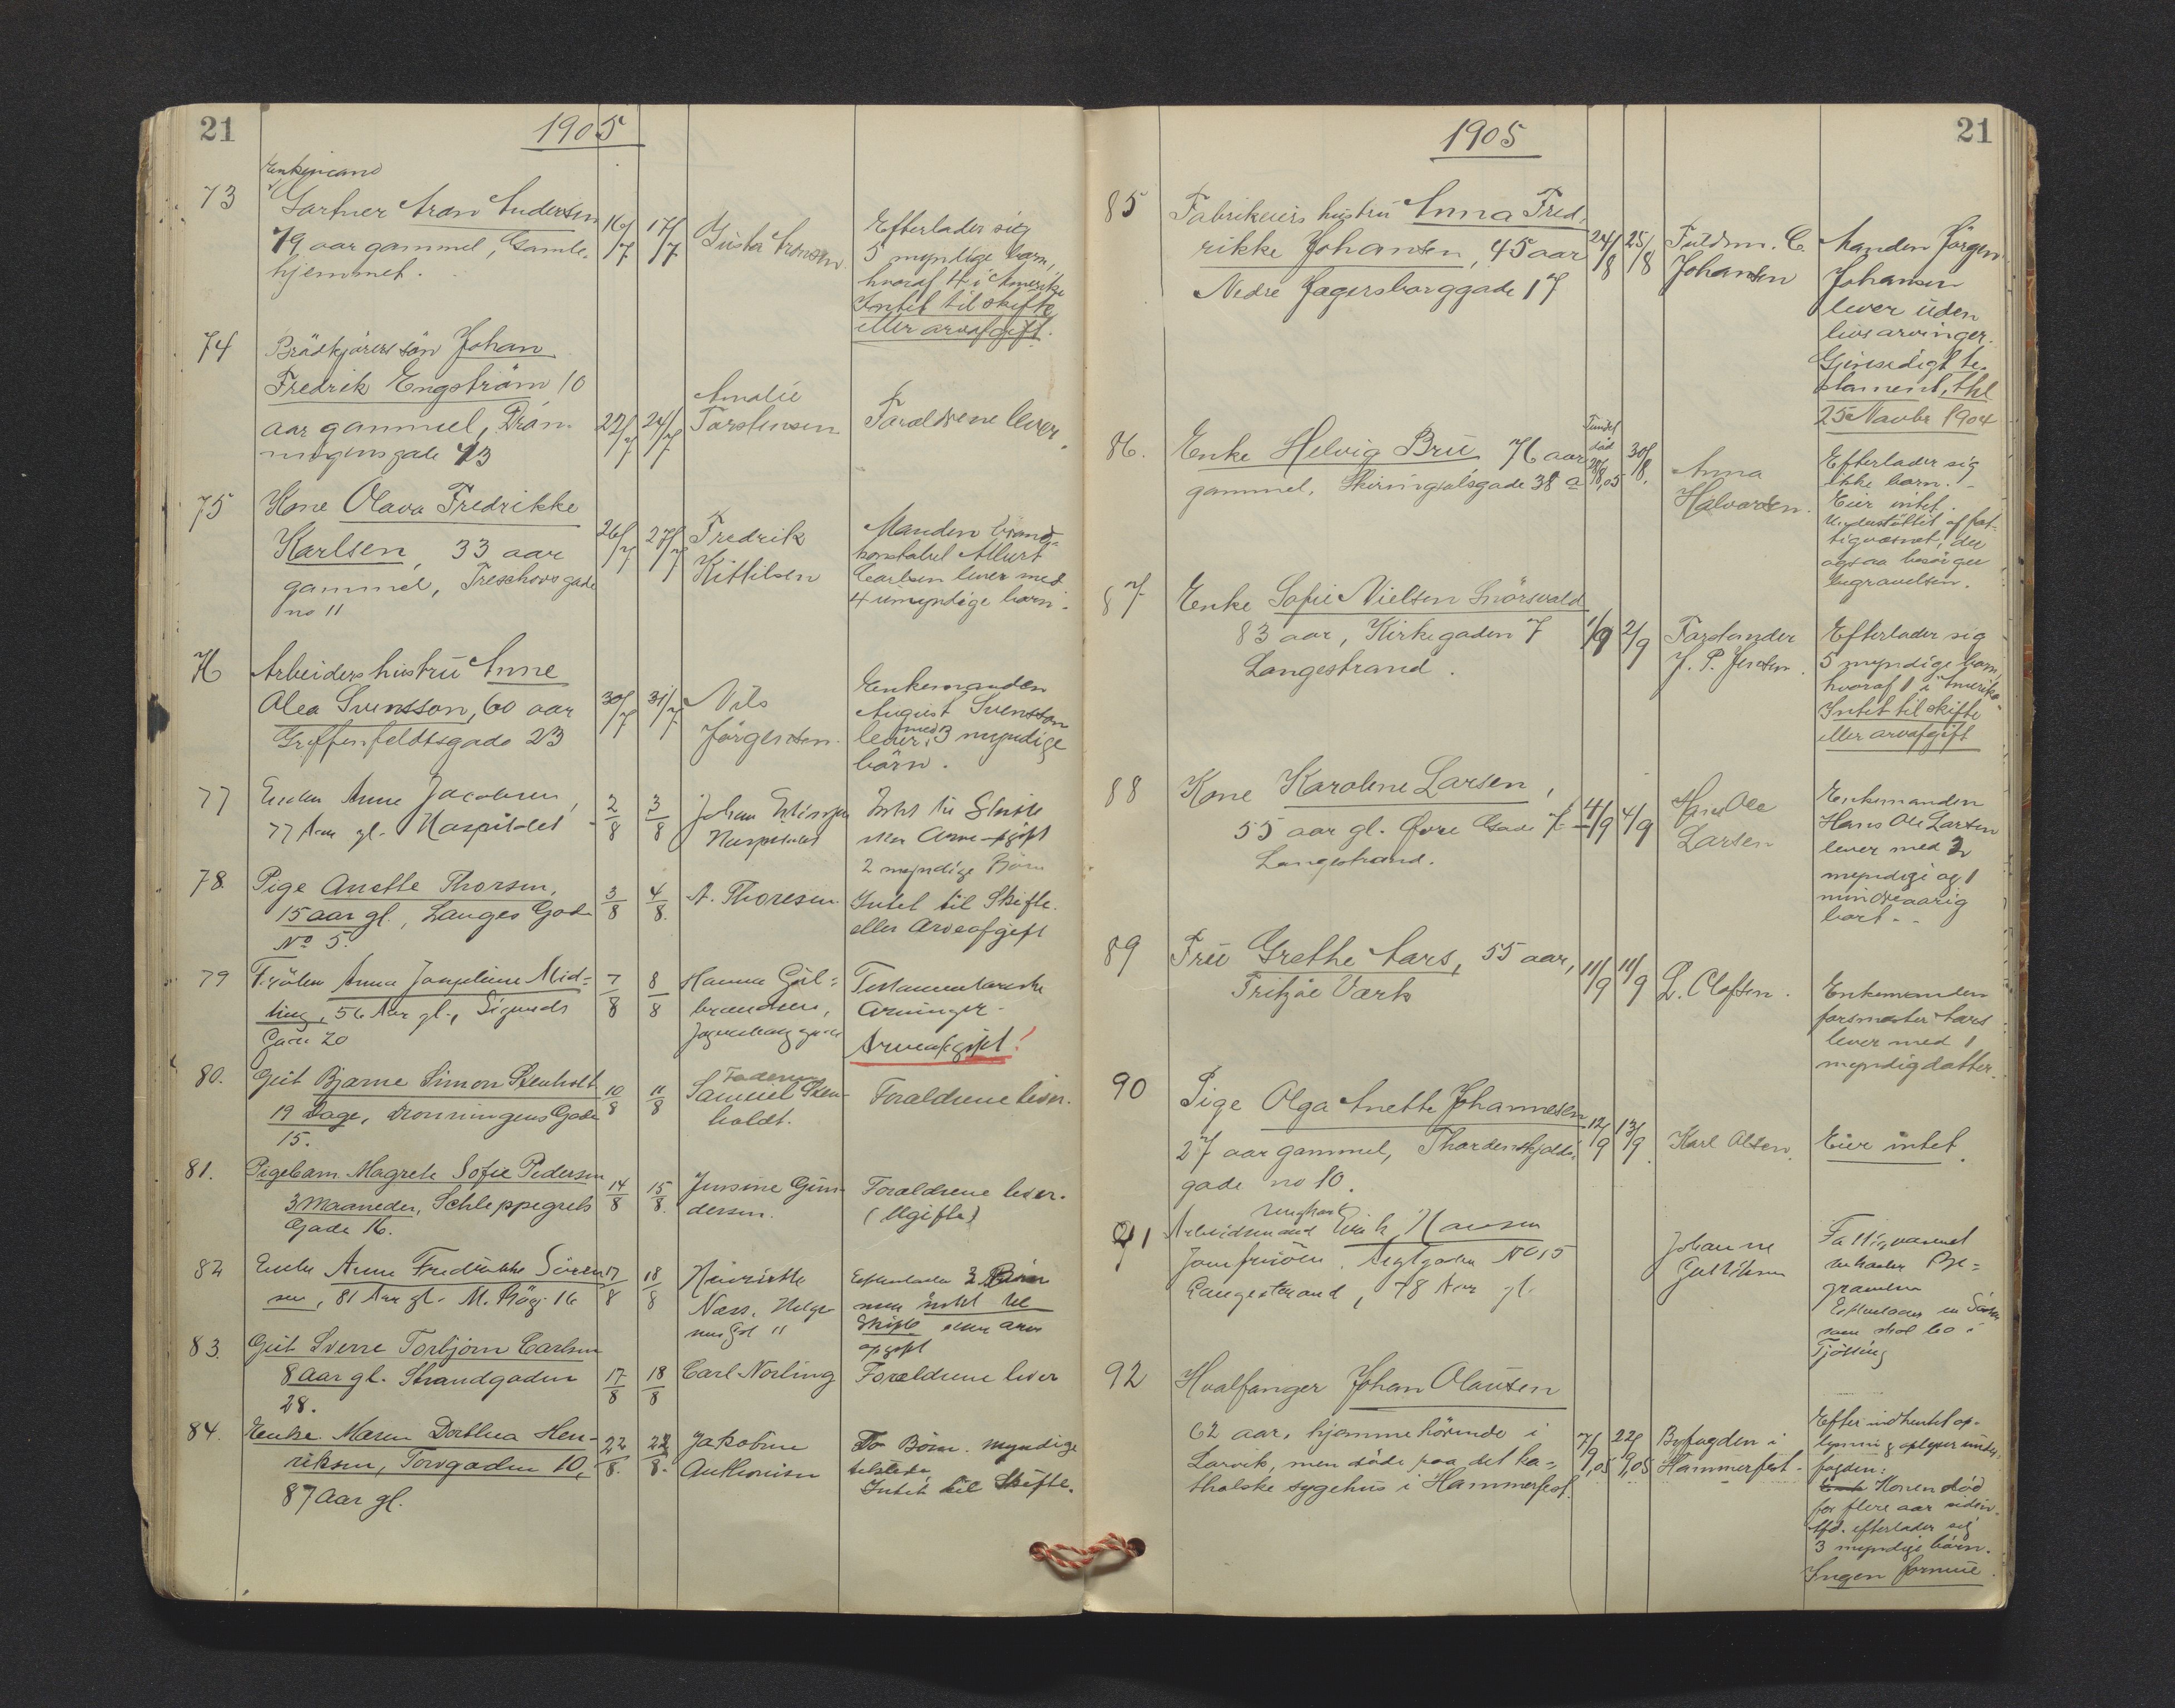 21
1905
Enkemand
73
Gartner Aron Andersen
79 aar gammel, Gamle-
hjemmet.
16/7
17/7
Gusta Aronsen
Efterlader sig
5 myndige barn,
hvoraf 4 i Amerika
Intet til skifte
eller arveafgift.
74
Brødkjørers søn Johan
Fredrik Engström 10
aar gammel, Dron-
ningensgade 43
22/7
24/7
Amalie
Torstensen
Forældrene lever.
75
Kone Olava Fredrikke
Karlsen, 33 aar
gammel, Treschowsgade
no 11
26/7
27/7
Fredrik
Kittilsen
Manden brand-
konstabel Albert
Carlsen lever med
4 umyndige børn.
76
Arbeiders hustru Anne
Olea Svensson, 60 aar
Griffenfeldtsgade 23
30/7
31/7
Nils
Jørgensen
Enkemanden
August Svensson
lever med 3 myndige
børn.
77
Enken Anne Jacobsen,
77 Aar gl. Hospitalet
2/8
3/8
Johan
Hospitalet
Intet til Skifte
eller Arveafgift
2 myndige Børn
78.
Pige Anette Thorsen,
15 aar gl., Langes Gade
No 5.
3/8
4/8.
A. Thoresen
Intet til Skifte
eller Arveafgift
79
Frøken Anna Josephine Mid-
ling, 56 Aar gl., Sigurds
Gade 20
7/8
8/8
Hanna Gul-
brandsen,
Testamentariske
Arvinger.
Arveafgift!
80.
Gut Bjarne Simon Stenholt
19 Dage, Dronningens Gade
15.
10/8
11/8
Faderen
Samuel Sten-
holdt.
Forældrene lever.
81.
Pigebarn Magrete Sofie Pedersen
3 Maaneder, Schleppegrels
Gade 16.
14/8
15/8.
Jensine Gun-
dersen.
Forældrene lever.
(Ugifte)
82
Enke Anne Fredrikke Søren-
sen, 81 Aar gl. M. Bøg. 16
17/8
18/8
Henriette
Næss, Helge-
Efterlader 3 Børn
men intet til
Skifte eller arve
afgift
83.
Gut Sverre Torbjørn Carlsen
8 aar gl. Strandgaden
28.
17/8
18/8
Carl Norling
Forældrene lever
84.
Enke Maren Dorthea Hen-
riksen, Torvgaden 10,
87 Aar gl.
22/8.
22/8.
Jakobine
Anthonisen
To Børn. myndige
tilstede,
Intet til Skifte.
1905
21
85
Fabrikeiers hustru Anna Fred-
rikke Johansen, 45 aar
Nedre Jagersborggade 17
24/8
25/8
Fuldm. C.
Johansen
Manden Jørgen
Johansen
lever uden
livsarvinger.
Gjensidigt te-
stament, thl
25 Novbr 1904
86.
Enke Helvig Bru 76 aar
gammel. Skiringsalsgade 38 a
Fundet
død
28/8,05
30/8.
Anna
Halvorsen.
Efterlader sig
ikke barn.
Eier intet.
Understøttet af fat-
tigvæsnet, der
ogsaa besørger
begravelsen.
87
Enke Sofie Nielsen Snørsvald
83 aar, Kirkegaden 7
Langestrand.
1/9
2/9
Forstander
J. P. Jensen.
Efterlader sig
5 myndige barn,
hvoraf 1 i Amerika.
Intet til skifte
eller arveafgift
88
Kone Karoline Larsen,
55 aar gl. Øvre Gade 7
Langestrand.
4/9
4/9
Hans Ole
Larsen
Enkemanden
Hans Ole Larsen
lever med 2
myndige og 1
mindreaarig
barn.
89
Frü Grethe Aars, 55 aar,
Fritzøe Værk
11/9
11/9
L. Olafsen.
Enkemanden
forsmester Aars
lever med 1
myndig datter.
90
Pige Olga Anette Johannesen
27 aar gammel, Thordenskjolds-
gade no 10.
12/9
13/9
Karl Olsen.
Eier intet.
91
ungkarl
Arbeidsmand Erik Hansen
Jomfruøen. No 15
Langestrand, 78 Aar gl.
Johanne
Gulliksen
Fattigvæsnet
bekoster Be-
gravelsen
Efterlader en Søster
som skal bo i
Tjølling
92
Hvalfanger Johan Olausen
62 aar, hjemmehørende i
Larvik, men døde paa det ka-
tholske sygehus i Hammerfest.
7/9,05
22/9,05
Byfogden i
Hammerfest.
Efter indhentet op-
lysning oplyser under-
fogden:
Konen død
for flere aar siden.
Afd. efterlader sig
3 myndige børn.
Ingen formue.